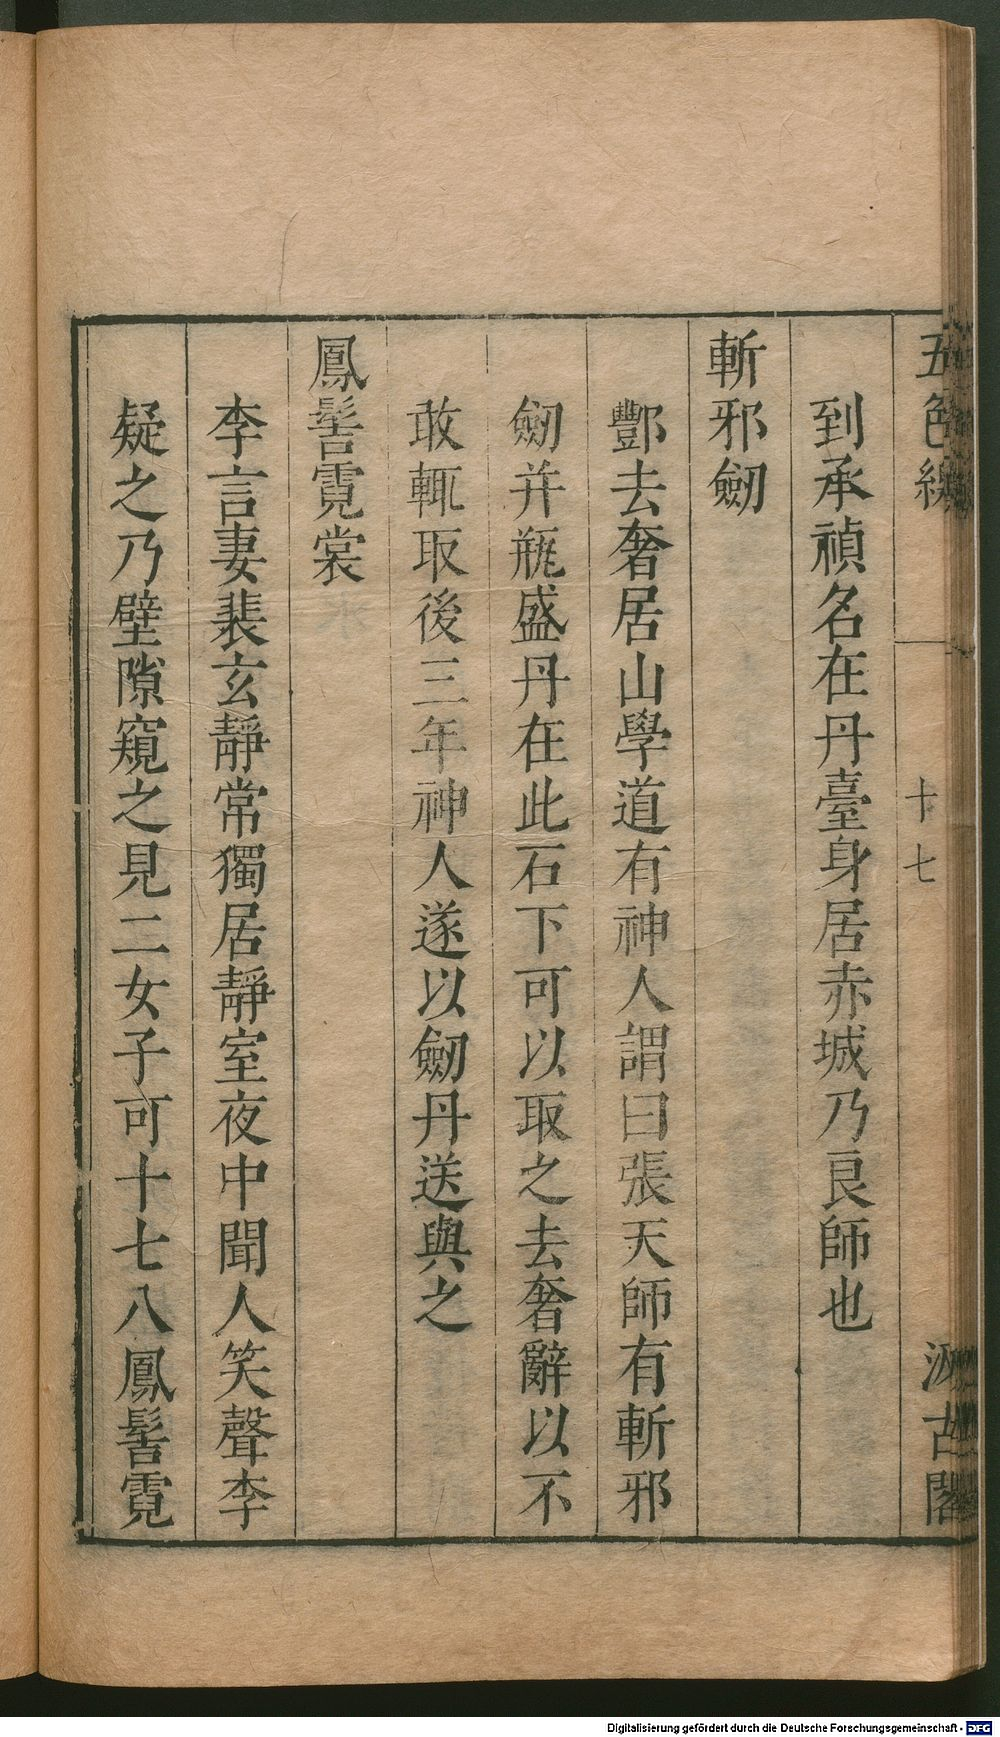 五色線
十七
汲古閣
到承禎名在丹臺身居赤城乃良師也
斬邪劒
酆去奢居山學道有神人謂曰張天師有斬邪
劒并瓶盛丹在此石下可以取之去奢辭以不
敢輒取後三年神人遂以劒丹送與之
鳳髻霓裳
李言妻裴玄靜常獨居靜室夜中聞人笑聲李
疑之乃壁隙窺之見二女子可十七八鳳髻霓
Digitalisierung gefördert durch die Deutsche Forschungsgemeinschaft - DFG